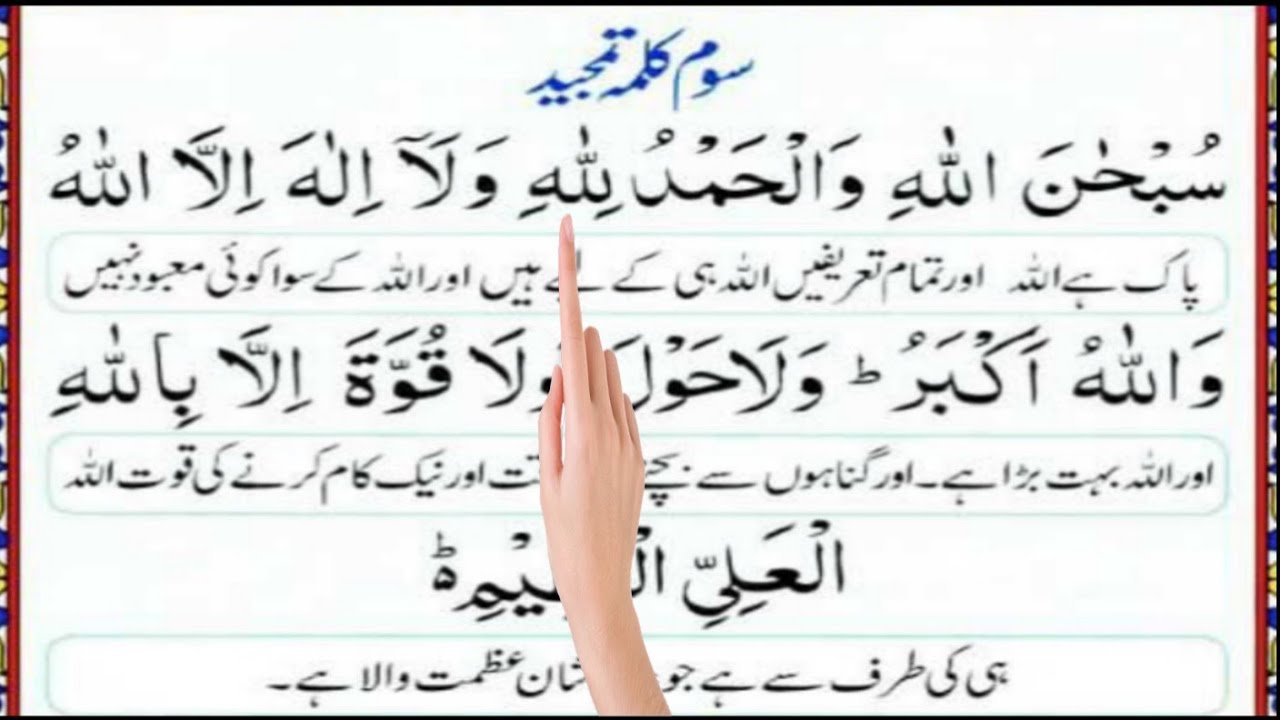 سوم کلمہ تمجید
سُبْحٰنَ اللّٰهِ وَالْحَمْدُ لِلّٰهِ وَلَآ اِلٰهَ اِلَّا اللّٰهُ
پاک ہے اللہ اور تمام تعریفیں اللہ ہی کے لیے ہیں اور اللہ کے سوا کوئی معبود نہیں
وَاللّٰهُ اَكْبَرُ ؕ وَلَا حَوْلَ وَلَا قُوَّةَ اِلَّا بِاللّٰهِ
اور اللہ بہت بڑا ہے۔ اور گناہوں سے اور نیک کام کرنے کی قوت اللہ
الْعَلِيِّ
ہی کی طرف سے ہے جو عظمت والا ہے۔